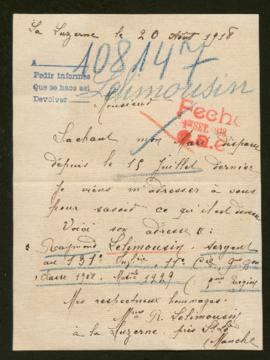 La Luzerne le 20 Août 1918
108147
A
Pedir informes
Que se hace asi
Devolver
Lelimousin
Monsieur
Fecha
Sachant mon Mari disparu
depuis le 15 Juillet dernier
Je viens m'adresser à vous
pour savoir ce qu'il est devenu
Voici son adresse :
Raymond Lelimousin sergent
au 131e 11e Cie
Classe 1908 Mle 1229
Mes respectueux hommages.
Mme R. Lelimousin
à la Luzerne près St Lô
(Manche